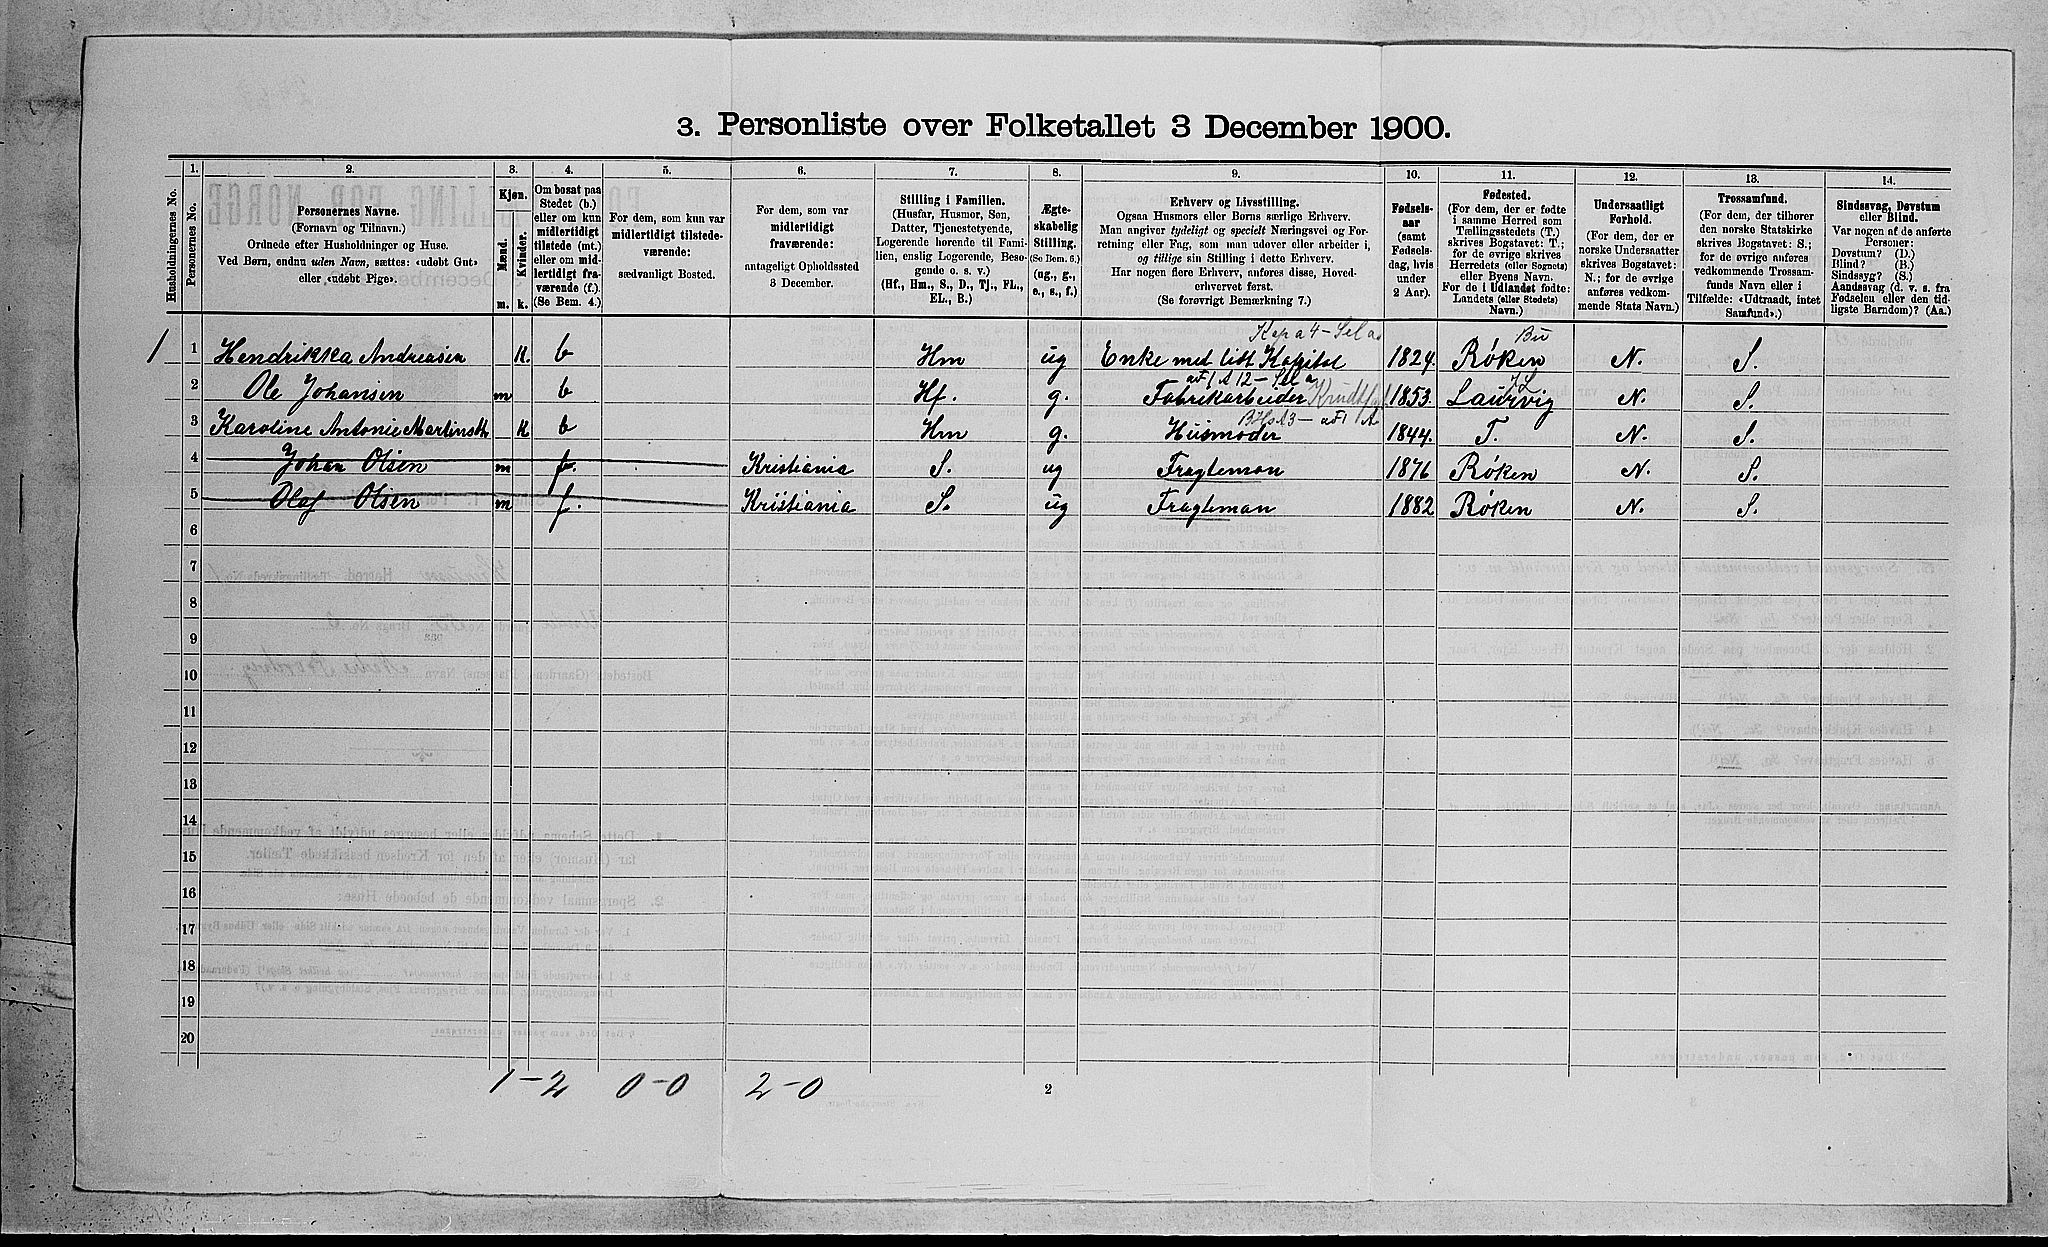 3. Personliste over Folketallet 3 December 1900.
1. 2. 3. 4. 5. 6. 7. 8. 9. 10. 11. 12. 13. 14.
Husholdningernes No.
Personernes No.
Personernes Navne.
(Fornavn og Tilnavn.)
Ordnede efter Husholdninger og Huse.
Ved Børn, endnu uden Navn, sættes: «udøbt Gut»
eller «udøbt Pige».
Kjøn.
Mænd.
Kvinder.
m. k.
Om bosat paa
Stedet (b.)
eller om kun
midlertidigt
tilstede (mt.)
eller om mid-
lertidigt fra-
værende (f.).
(Se Bem. 4.)
For dem, som kun var
midlertidigt tilstede-
værende:
sædvanligt Bosted.
For dem, som var
midlertidigt
fraværende:
antageligt Opholdssted
3 December.
Stilling i Familien.
(Husfar, Husmor, Søn,
Datter, Tjenestetyende,
Logerende hørende til Fami-
lien, enslig Logerende, Besø-
gende o. s. v.)
(Hf., Hm., S., D., Tj., FL.,
EL., B.)
Ægte-
skabelig
Stilling.
(Se Bem. 6.)
(ug., g.,
e., s., f.)
Erhverv og Livsstilling.
Ogsaa Husmors eller Børns særlige Erhverv.
Man angiver tydeligt og specielt Næringsvei og For-
retning eller Fag, som man udover eller arbeider i,
og tillige sin Stilling i dette Erhverv.
Har nogen flere Erhverv, anføres disse, Hoved-
erhvervet først.
(Se forøvrigt Bemærkning 7.)
Fødsels-
aar
(samt
Fødsels-
dag, hvis
under
2 Aar).
Fødested.
(For dem, der er fødte
i samme Herred som
Tællingsstedets (T.)
skrives Bogstavet: T.;
for de øvrige skrives
Herredets (eller Sognets)
eller Byens Navn.
For de i Udlandet fødte:
Landets (eller Stedets)
Navn.)
Undersaatligt
Forhold.
(For dem, der er
norske Undersaatter
skrives Bogstavet:
N.; for de øvrige
anføres vedkom-
mende Stats Navn.)
Trossamfund.
(For dem, der tilhører
den norske Statskirke
skrives Bogstavet: S.;
for de øvrige anføres
vedkommende Trossam-
funds Navn eller i
Tilfælde: «Udtraadt, intet
Samfund».)
Sindssvag, Døvstum
eller Blind.
Var nogen af de anførte
Personer:
Døvstum? (D.)
Blind? (B.)
Sindssyg? (S.)
Aandssvag (d. v. s. fra
Fødselen eller den tid-
ligste Barndom)? (Aa.)
1 1 Hendrikka Andreasen K. b Hm ug Enke med lidt Kapital 1824. Røken N. S.
2 Ole Johansen m b Hf. g. Fabrikarbeider 1853. Laurvig N. S.
3 Karoline Antonie K b Hm g. Husmoder 1844. T. N. S.
4 Johan Olsen m f. Kristiania S. ug Fragteman 1876 Røken N. S.
5 Olaf Olsen m f. Kristiania S. ug Fragteman 1882 Røken N. S.
6
7
8
9
10
11
12
13
14
15
16
17
18
19
20
1-2 0-0 2-0 2